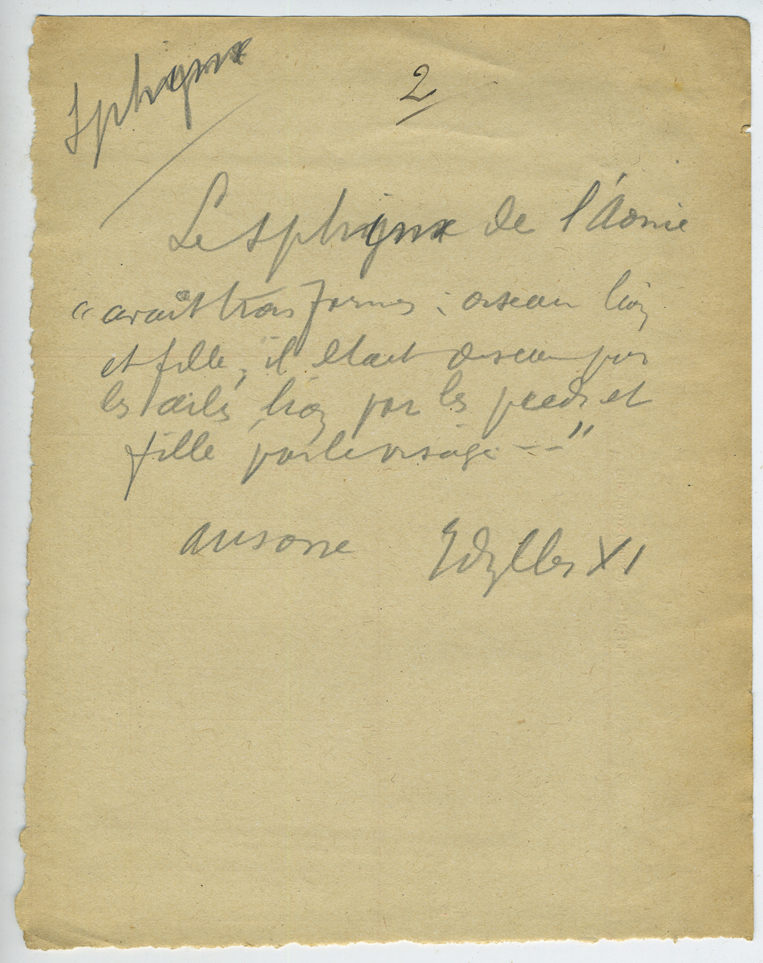 Sphynx
2
Le sphynx de l'Aonie
"avait trois formes : oiseau lion
et fille, il était oiseau par
les ailes, lion par les pieds et
fille par le visage --"
Ausone Idylles XI